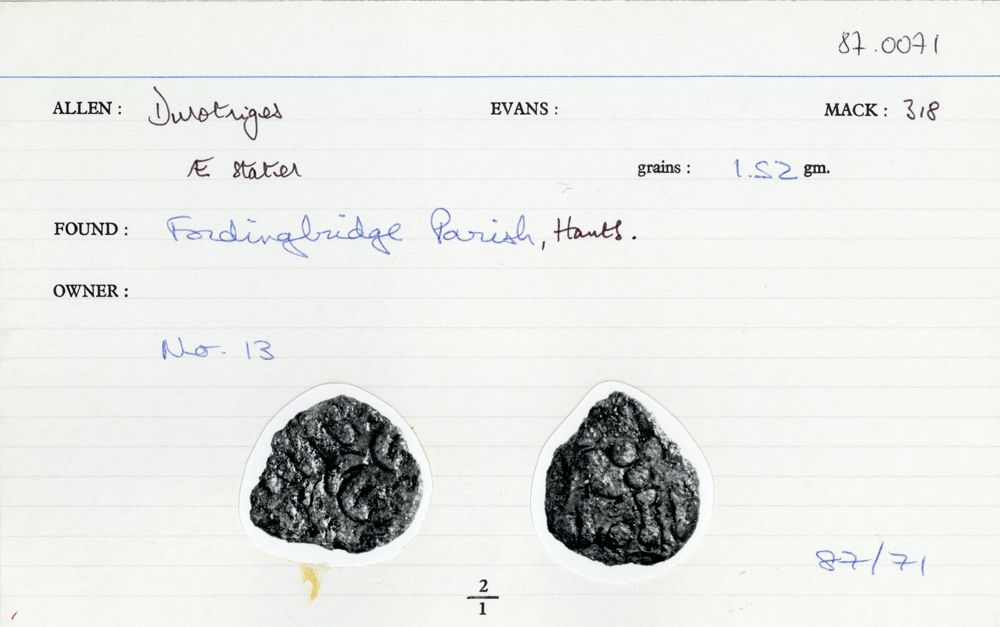 87.0071
ALLEN: Durotriges EVANS: MACK: 318
Æ Stater grains: 1.52 gm.
FOUND: Fordingbridge Parish, Hants.
OWNER:
No. 13
87/71
2
1